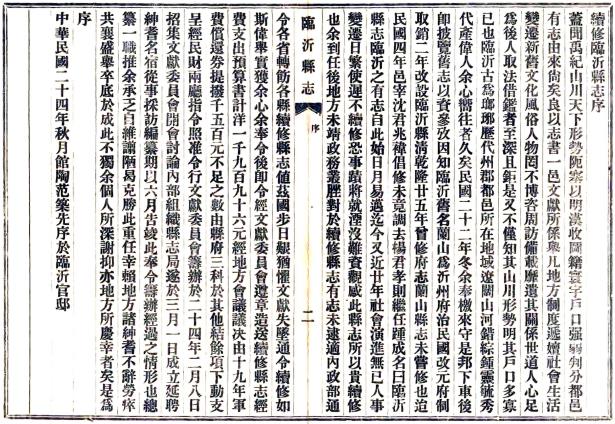 續修臨沂縣志序
蓋聞禹紀山川天下形勢阨塞以明漢收圖籍寰宇戶口强弱判分郡邑
有志由來尚矣良以志書一邑文獻所係舉凡地方制度遞嬗社會生活
變遷新舊文化風俗人物罔不博咨周訪備載靡遺其關係世道人心足
爲後人取法借鑑者至深且鉅是又不僅知其山川形勢明其戶口多寡
已也臨沂古爲瑯琊歷代州郡都邑所在地域遼闊山河錯綜鍾靈毓秀
代產偉人余心嚮往者久矣民國二十二年冬余奉檄來守是邦下車後
卽披覽舊志以資參攷因知臨沂舊名蘭山爲沂州府治民國改元府制
取銷二年改設臨沂縣清乾隆廿五年曾修府志蘭山縣志未嘗修也迨
民國四年邑宰沈君兆褘倡修未竟調去楊君孝則繼任踵成名曰臨沂
縣志臨沂之有志自此始日月易邁迄今又近廿年社會演進無已人事
變遷日繁使遲不續修恐事蹟將就湮沒難資觀感此縣志所以貴續修
也余到任後地方未靖政務叢脞對於續修縣志有志未逮適內政部通
臨沂縣志
序
一
令各省轉飭各縣續修縣志値茲國步日艱猶懼文獻失墜通令續修如
斯偉擧實獲余心余奉令後卽令經文獻委員會遵章造送續修縣志經
費支出預算書計洋一千九百九十六元經地方會議議决由十九年軍
費償還券提撥千五百元不足之數由縣府三科於其他結餘項下動支
呈經民財兩廳指令照准令行文獻委員會籌辦於二十四年二月八日
招集文獻委員會開會討論內部組織縣志局遂於三月一日成立延聘
紳耆名宿從事採訪編纂期以六月告竣此奉令籌辦經過之情形也總
纂一職推余承乏自維譾陋曷克勝此重任幸賴地方諸紳耆不辭勞瘁
共襄盛擧卒底於成此不獨余個人所深謝抑亦地方所慶幸者矣是爲
序
中華民國二十四年秋月館陶范築先序於臨沂官邸